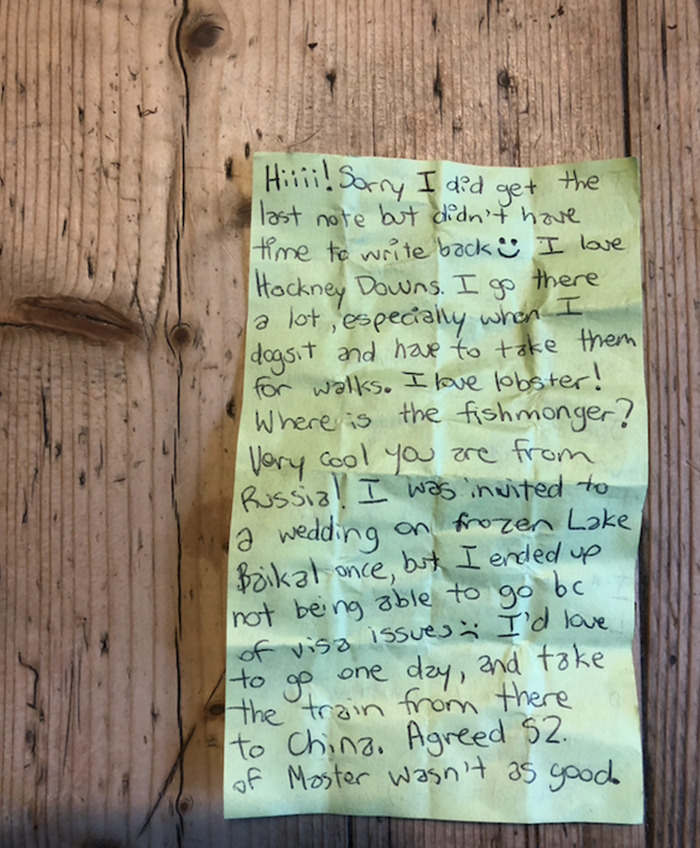 Hiiii! Sorry I did get the
last note but didn't have
time to write back I love
Hackney Downs. I go there
a lot, especially when I
dogsit and have to take them
for walks. I love lobster!
Where is the fishmonger?
Very cool you are from
Russia! I was invited to
a wedding on frozen Lake
Baikal once, but I ended up
not being able to go bc
of visa issues :( I'd love
to go one day, and take
the train from there
to China. Agreed S2.
of Master wasn't as good.